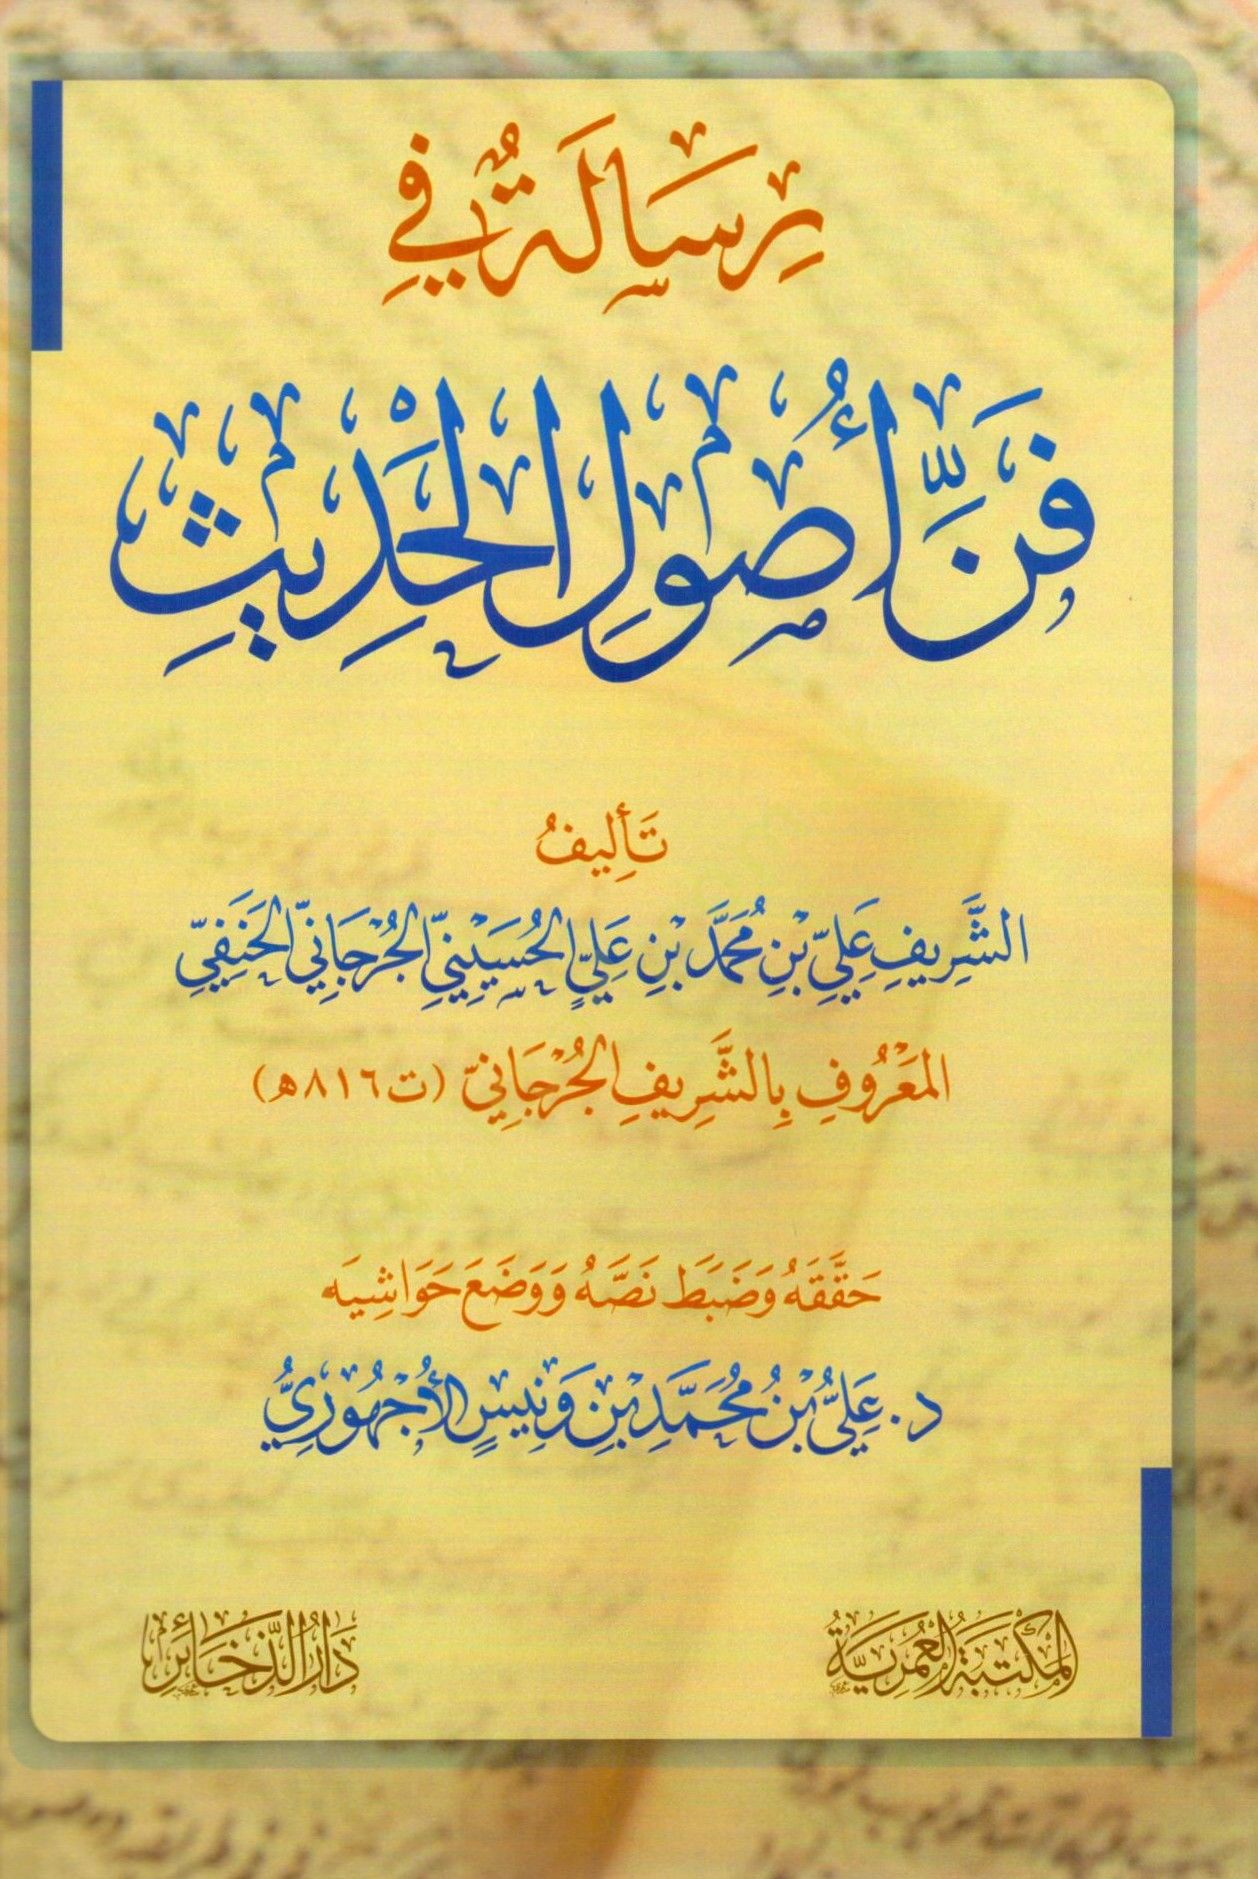 رِسَالَةٌ فِي
فَنِّ أُصُولِ الْحَدِيثِ
تَأْلِيفُ
الشَّرِيفِ عَلِيِّ بْنِ مُحَمَّدِ بْنِ عَلِيٍّ الحُسَيْنِيِّ الجُرْجَانِيِّ الحَنَفِيِّ
المَعْرُوفِ بِالشَّرِيفِ الجُرْجَانِيِّ (ت ٨١٦هـ)
حَقَّقَهُ وَضَبَطَ نَصَّهُ وَوَضَعَ حَوَاشِيَه
د. عَلِيُّ بْنُ مُحَمَّدِ بْنِ وَنِيسٍ الأُجْهُورِيُّ
المَكْتَبَةُ العُمَرِيَّةُ
دَارُ الذَّخَائِرِ